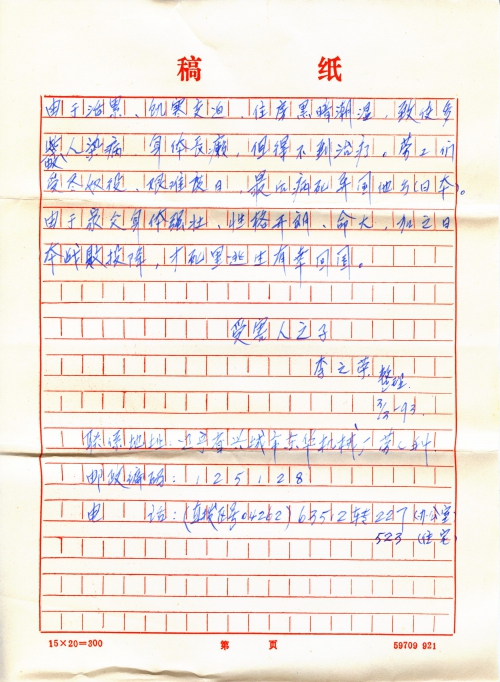 稿 纸
由于活累、饥寒交迫,住房黑暗潮湿,致使多
数人染病,身体长癞,但得不到治疗,劳工们
受尽奴役,艰难度日,最后病死异国他乡(日本)。
由于家父身体强壮、性格开朗、命大,加之日
本战败投降,才死里逃生有幸回国。
受害人之子
李之荣 整理
3/3-93.
联系地址:辽宁省兴城市东华机械厂劳人科
邮政编码:125128
电 话:(直拨区号04262)6352转227(办公室)
523(住宅)
15×20=300 第 页 59709 921